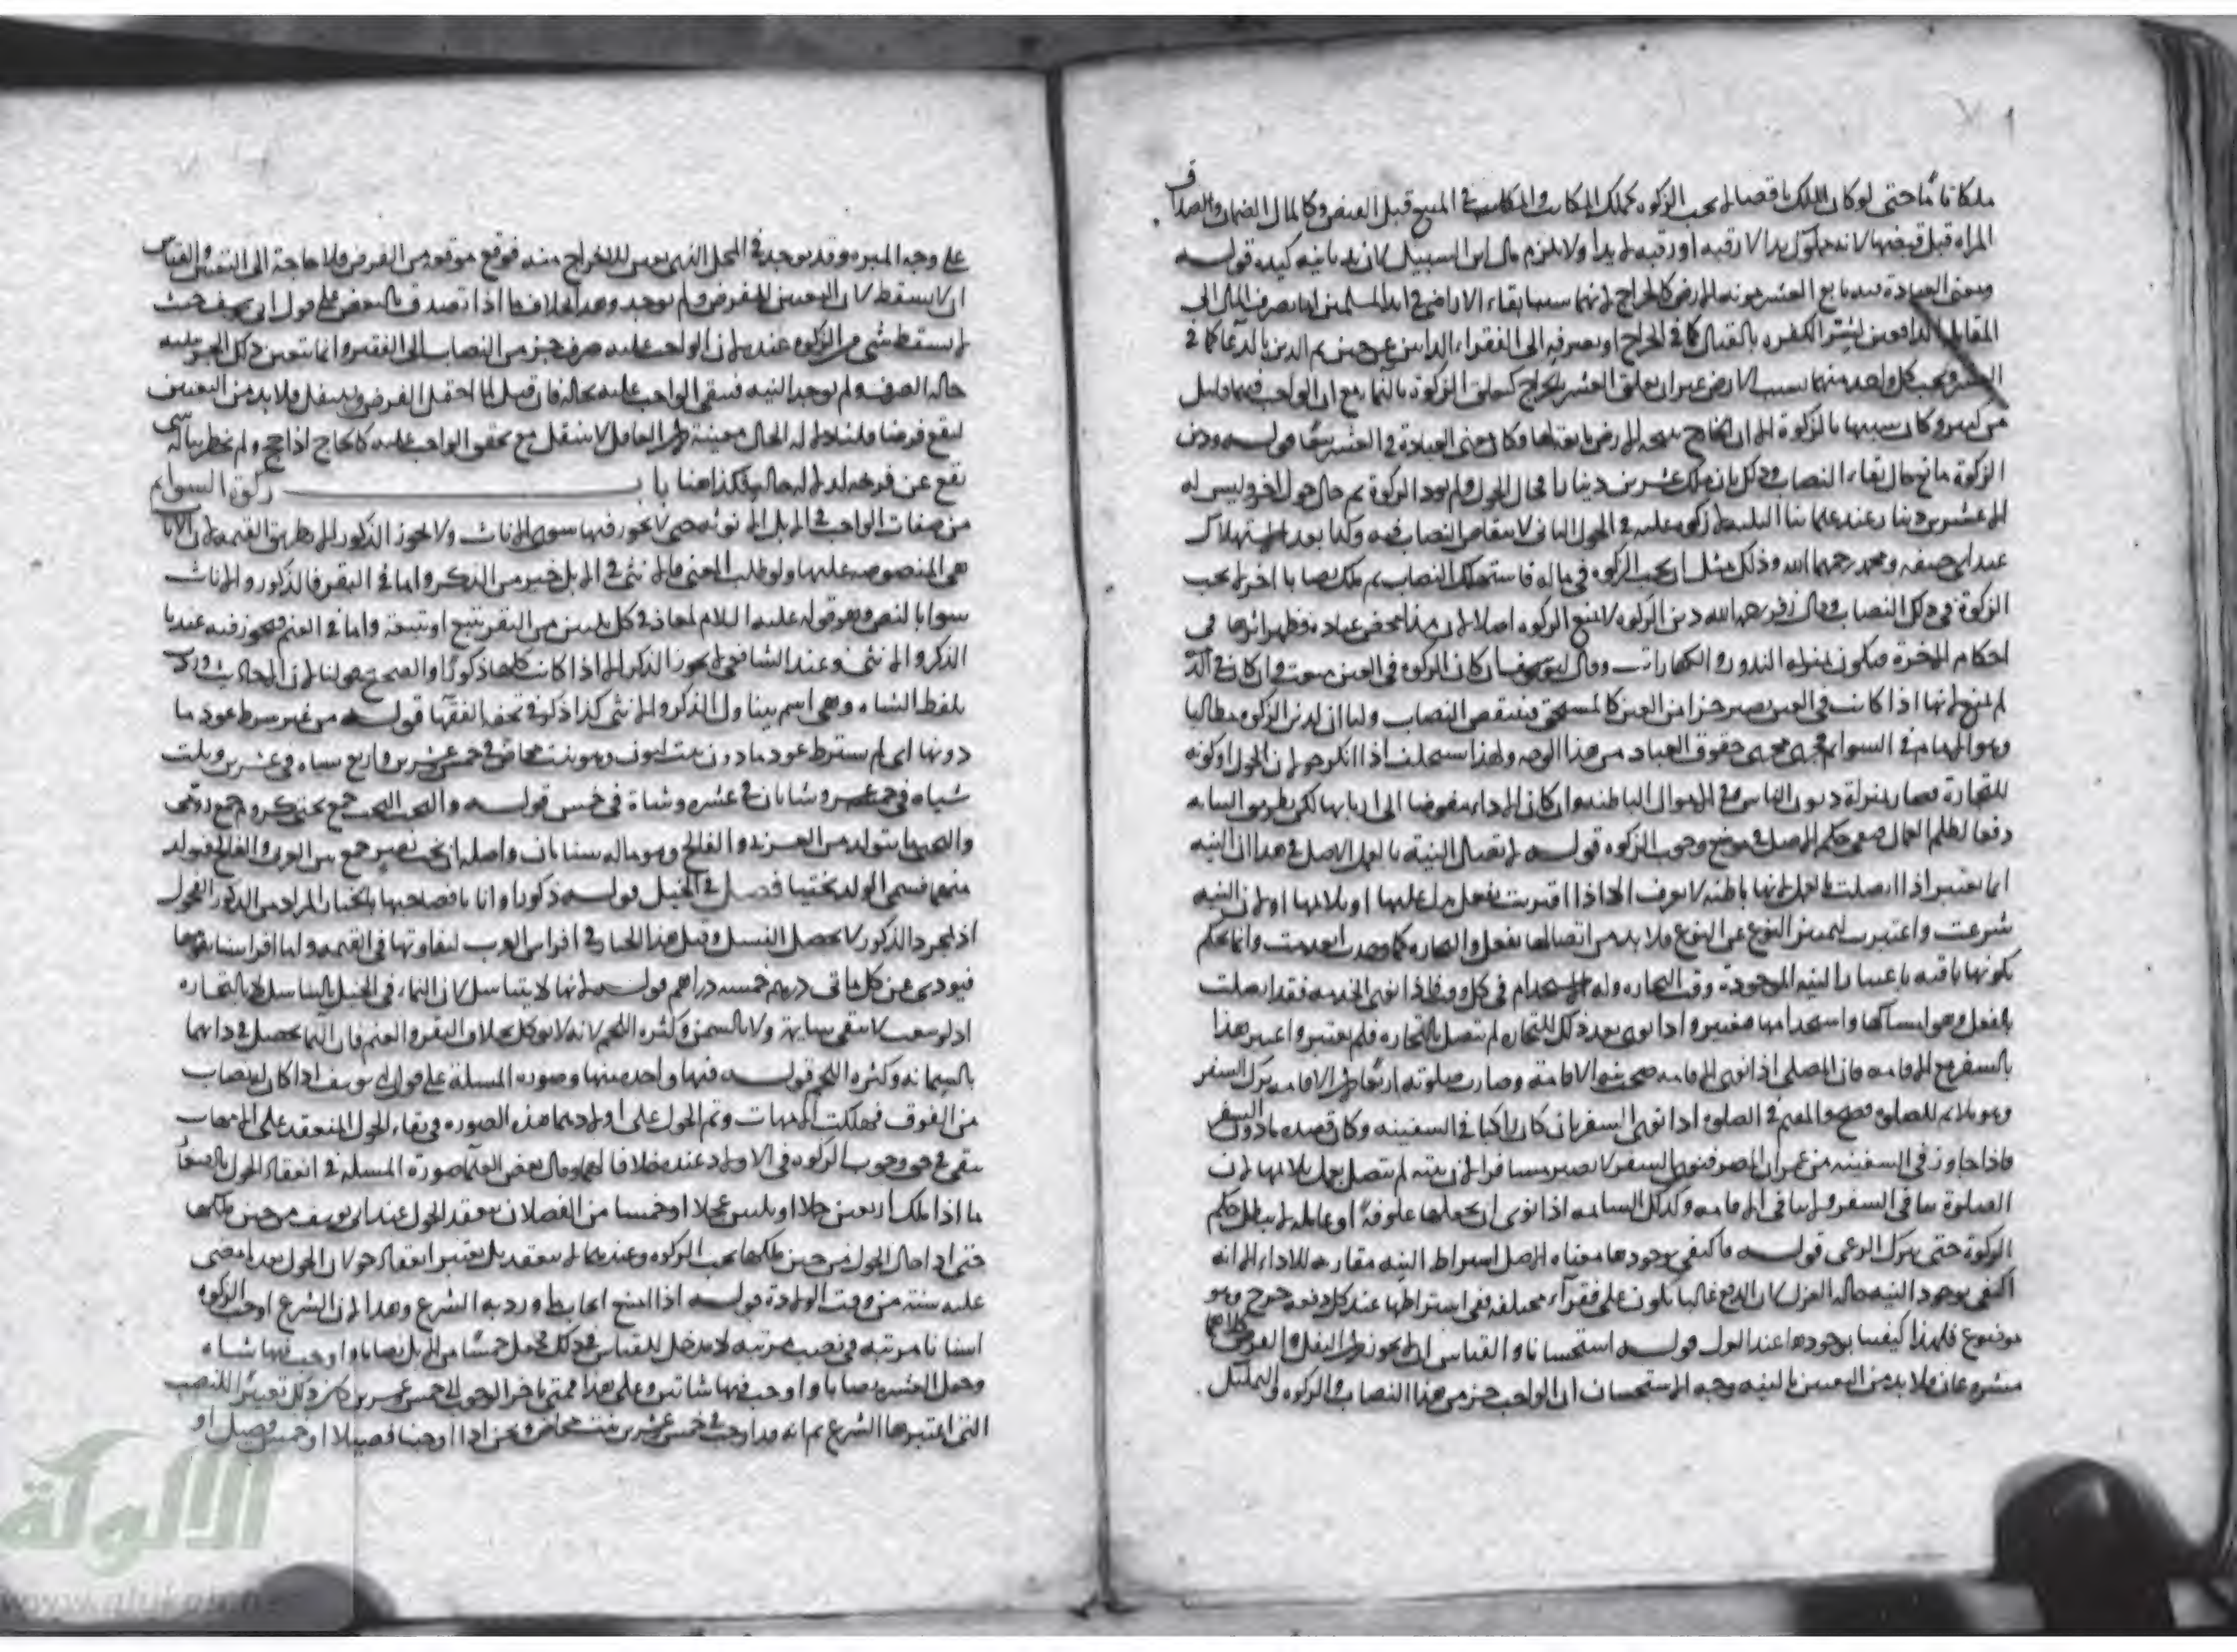 ملكا تاما حتى لو كان الملك ناقصا لم يجب الزكوة كملك المكاتب في المبيع قبل القبض وكالمال الضمار والصداق
المراة قبل قبضها لانه مملوك يدا لا رقبة او رقبة لا يدا ولا يلزم مال ابن السبيل لان يد نايبه كيده قوله
ومعنى العبادة تابع العشر مونة الارض كالخراج لانهما سبب بقاء الاراضي في ايد المسلمين اما بصرف المال الى
المقاتلة الدافعين لشر الكفرة بالقتال كما في الخراج او بصرفه الى الفقراء الدابين عن حريم الدين بالدعا كما في
العشر ويجب كل واحد منهما بسبب الارض غير ان تعلق العشر بالخارج كتعلق الزكوة بالنماء مع ان الواجب فيهما قليل
من كثير وكان شبيها بالزكوة وكان معنى العبادة في العشر تبعا قوله ودين
الزكوة مانع حال بقاء النصاب وذلك بان ملك عشرين دينارا فحال الحول ولم يود الزكوة ثم حال حول اخر وليس له
الا عشرين دينارا عند علمائنا الثلاثة لا زكوة عليه في الحول الثاني لانتقاص النصاب فيه وكذا بعد الاستهلاك
عند ابي حنيفة ومحمد رحمهما الله وذلك مثل ان يجب الزكوة في ماله فاستهلك النصاب ثم ملك نصابا اخر لا يجب
الزكوة في ذلك النصاب وقال زفر رحمه الله دين الزكوة لا يمنع الزكوة اصلا لان هذا محض عبادة وظهر اثرها في
احكام الاخرة فتكون بمنزلة النذور والكفارات وقال ابو يوسف ان كان الزكوة في العين يمنع وان كان في الذمة
لم يمنع لانها اذا كانت في العين يصير جزا من العين كالمستحق فينتقص النصاب ولنا ان لدين الزكوة مطالبا
وهو الامام في السوايم فجرى مجرى حقوق العباد من هذا الوجه ولهذا يستحلف اذا انكر حولان الحول او كونه
للتجارة فصار بمنزلة ديون الناس وفي الاموال الباطنة وان كان الاداء مفوضا الى اربابها لكن بطريق النيابة
دفعا لظلم العمال فبقي حكم الاصل في موضع وجوب الزكوة قوله لاتصال النية بالعمل الاصل في هذا ان النية
انما تعتبر اذا اتصلت بالعمل لانها باطنة لا تعرف الا اذا اقترنت بفعل يدل عليها او يلايمها او لان النية
شرعت واعتبرت لتمييز النوع عن النوع فلا بد من اتصالها بفعل
بكونها باقية باعتبار النية الموجودة وقت التجارة وله الاستخدام في كل وقت فاذا نوى الخدمة فقد اتصلت
بالفعل وهو امساكها واستخدامها فتعتبر واذا نوى بعد ذلك للتجارة لم تتصل بالتجارة فلم يعتبر واعتبر هذا
بالسفر مع الاقامة فان المصلي اذا نوى الاقامة صحت نية الاقامة وصارت صلوته اربعا لان الاقامة ترك السفر
وهو ملايم للصلوة فتصح والمقيم في الصلوة اذا نوى السفر بان كان راكبا في السفينة وكان قصده مادون السفر
فاذا جاوز في السفينة من عمران المصر فنوى السفر لا يصير مسافرا لان نيته لم تتصل بعمل يلايمها لان
الصلوة تنافي السفر ولا تنافي الاقامة وكذلك السايمة اذا نوى ان يجعلها علوفة او عاملة لا يبطل حكم
الزكوة حتى يترك الرعي قوله فاكتفي بوجودها معناه الاصل اشتراط النية مقارنة للاداء الا انه
اكتفي بوجود النية حالة العزل لان الدفع غالبا يكون على فقراء مختلفة ففي اشتراطها عند كل دفعة حرج وهو
موضوع فلهذا كيفينا بوجودها عند العزل قوله استحسانا والقياس ان لا يجوز لان النفل والفرض كلاهما
مشروعان فلا بد من التعيين بالنية وجه الاستحسان ان الواجب جزء من هذا النصاب والزكوة في التمليك
على وجه المبرة وقد يوجد في المحل الذي تعين للاخراج منه فوقع موقعه من الفرض فلا حاجة الى التعيين والقياس
ان لا يسقط لان التعيين للفرض ولم يوجد وهذا بخلاف ما اذا تصدق بالبعض على قول ابي يوسف حيث
لا يسقط شي من الزكوة عنده لان الواجب عليه صرف جزء من النصاب الى الفقير وانما يتعين ذلك الجزء عليه
حالة الصرف ولم يوجد النية فيبقى الواجب عليه بحاله فان قيل لما احتمل الفرض والنفل فلا بد من التعيين
ليقع فرضا قلنا دلالة الحال معينة لان العاقل لا يتنفل مع تحقق الواجب عليه كالحاج اذا حج ولم يخطر بباله شي
يقع عن فرضه لدلالة حاله فكذا هنا باب زكوة السوايم
من صفات الواجب في الابل الانوثة حتى لا يجوز فيها سوى الاناث ولا يجوز الذكور الا بطريق القيمة لان الاناث
هي المنصوصة عليها ولو طلب المعنى فالانثى في الابل خير من الذكر واما في البقر فالذكور والاناث
سوا بالنص وهو قوله عليه السلام لمعاذ في كل ثلثين من البقر تبيع او تبيعة واما في الغنم فيجوز فيه عندنا
الذكر والانثى وعند الشافعي لا يجوز الذكر الا اذا كانت كلها ذكورا والصحيح قولنا لان الحديث ورد
بلفظ الشاه وهي اسم يتناول الذكر والانثى كذا ذكر في تحفة الفقها قوله من غير شرط عود ما
دونها اي لم يشترط عود مادون بنت لبون وهو بنت مخاض في خمس وعشرين واربع شياه في عشرين وثلث
شياه في خمسة عشر وشاتان في عشره وشاة في خمس قوله والبخت البخت جمع بختي كروم جمع رومي
والبختي ما يتولد من العربية والفالج وهو ماله سنامان واصله ان بخت نصر جمع بين العربي والفالج فولد
منهما فسمي الولد بختيا فصل في الخيل قوله ذكورا واناثا فصاحبها بالخيار المراد من الذكور الفحول
اذ بمجرد الذكور لا يحصل النسل وقيل هذا الخيار في افراس العرب لتفاوتها في القيمة واما افراسنا يقومها
فيودى عن كل مائتي درهم خمسه دراهم قوله لانها لا يتناسل لان النماء في الخيل بالتناسل لا بالتجارة
ولا بالسمن وكثره اللحم لانه لا يوكل بخلاف البقر والغنم فان النما يحصل في ذاتهما
بالسمانة وكثره اللحم قوله فيها واحده منها وصوره المسلة على قول ابي يوسف اذا كان له نصاب
من النوق فهلكت الامهات وتم الحول على اولادها هذه الصوره في بقاء الحول المنعقد على الامهات
يبقى في حق وجوب الزكوة في الاولاد عنده خلافا لهما وقال بعض العلماء صورة المسلة في انعقاد الحول بالصغار
ما اذا ملك اربعين حملا او ثلثين عجلا او خمسا من الفصلان ينعقد الحول عند ابي يوسف من حين ملكها
حتى اذا حال الحول من حين ملكها يجب الزكوة وعندهما لا ينعقد بل يعتبر انعقاد حولان الحول بعد ما مضى
عليه سنة من وقت الولادة قوله اذا امتنع ايجاب ما ورد به الشرع وهذا لان الشرع اوجب الزكوة
اسنانا مرتبة في نصب مرتبة لا مدخل للقياس في ذلك فجعل خمسا من الابل نصابا واوجب فيها شاه
وجعل العشر نصابا واوجب فيها شاتين وعلى هذا
التي اعتبرها الشرع ثم انه قد اوجب في خمس وعشرين بنت مخاض ونحن اذا اوجبنا فصيلا او خمس فصيل او
الالوكة
www.alukah.n